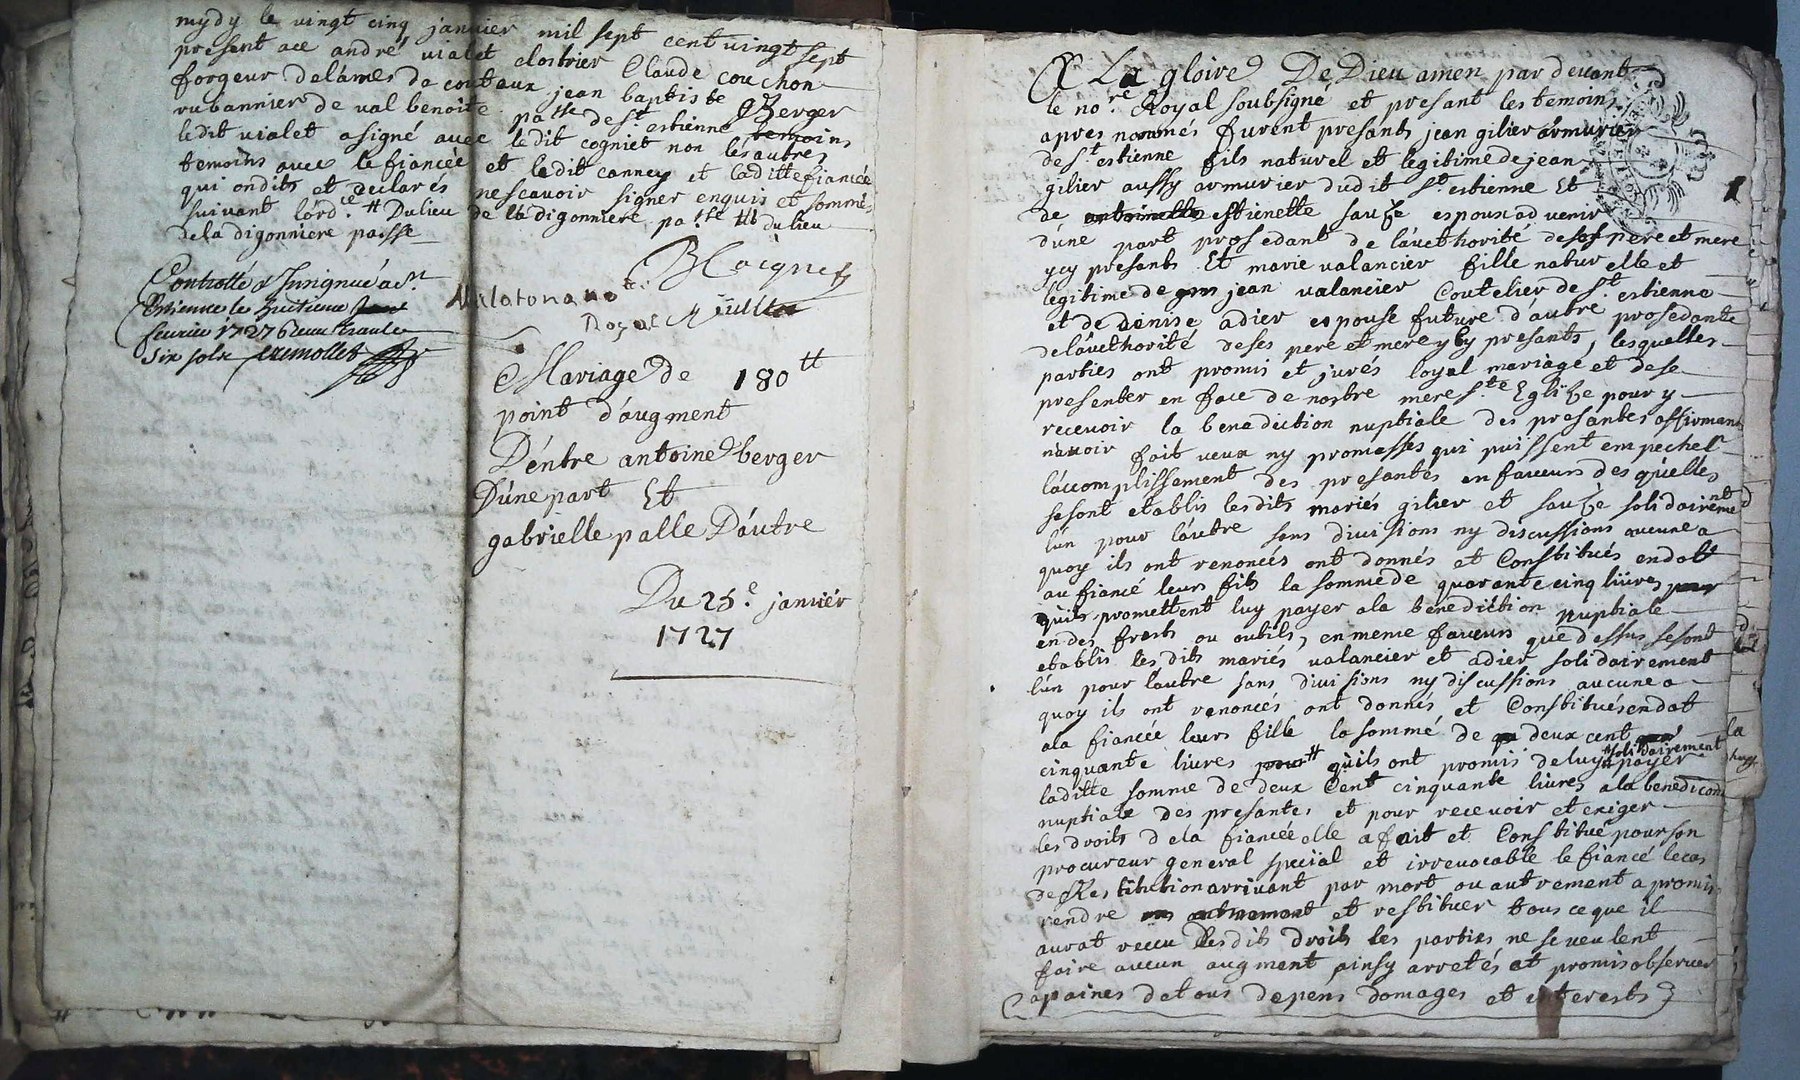 mydy le vingt cinq janvier mil sept cent vingt sept
present ace andré vialet clostrier Claude couchon
forgeur delámes de couteaux jean baptiste Berger
rubannier de val benoite pa.sse de St estienne temoins
ledit vialet a signé avec ledit cogniet non lésautres
temoins avec la fiancée et ledit canney et laditte fiancée
qui ondits et declarés nescavoir signer enquis et sommés
suivant lórd.ce # Dulieu de la digonniere pa.sse # dulieu
dela digonniere passe
Controllé & Insignué a St
Estienne le huitieme
fevrier 1727
six sols
Mariage de 180 tt
point d'augment
D'éntre antoine berger
D'úne part Et
gabrielle palle D'áutre
Du 25.e janviér
1727
A La gloire De Dieu amen par devant
le no.re Royal soubsigné et presant les temoins
apres nommés furent presants jean gilier armurier
de St estienne fils naturel et legitime de jean
gilier aussy armurier dudit St estienne Et
de antoinette estienette sauze espoux ad venir
d'úne part prosedant de láuethorité de ses pere et mere
ycy presants Et marie valancier fille naturelle et
legitime de jean valancier Coutelier de St estienne
et de Denise adier espouse future d'áutre prosedante
de láuethorité de ses pere et mere ycy presants, lesquelles
parties ont promis et jurés loyal mariagé et de se
presenter en face de nostre mere Ste Eglize pour y
recevoir la benediction nuptiale des presantes affirmant
návoir fait veux ny promesses qui puissent empecher
láccomplissement des presantes en faveurs des quélles
se sont etablis lesdits mariés gilier et sauze solidairemént
lún pour láutre sans divisions ny discussions aucune a
quoy ils ont renoncés ont donnés et Constitués en dot
au fiancé leurs fils la somme de quarante cinq livres pour
quils promettent luy payer a la benediction nuptiale
en des frests ou outils, en meme faveurs que dessus se sont
etablis les dits mariés valancier et adier solidairement
lún pour lautre sans divisions ny discussions aucune a
quoy ils ont renoncés ont donnés et Constitués en dot
a la fiancée leurs fille la sommé de deux cent
cinquante livres # quils ont promis de luy solidairement payer
laditte somme de deux Cent cinquante livres a la benedicon
nuptiale des presantes et pour recevoir et exiger
les droits de lá fiancée elle a fait et Constitué pour son
procureur general speciál et irrevocable le fiancé le cas
de Restitution arrivant par mort ou autrement a promis
rendre et restituer tous ce que il
aurat reccu desdits droits les parties ne se veulent
faire aucun augment ainsy arretés et promis observer
a paines de tous depéns domages et interests